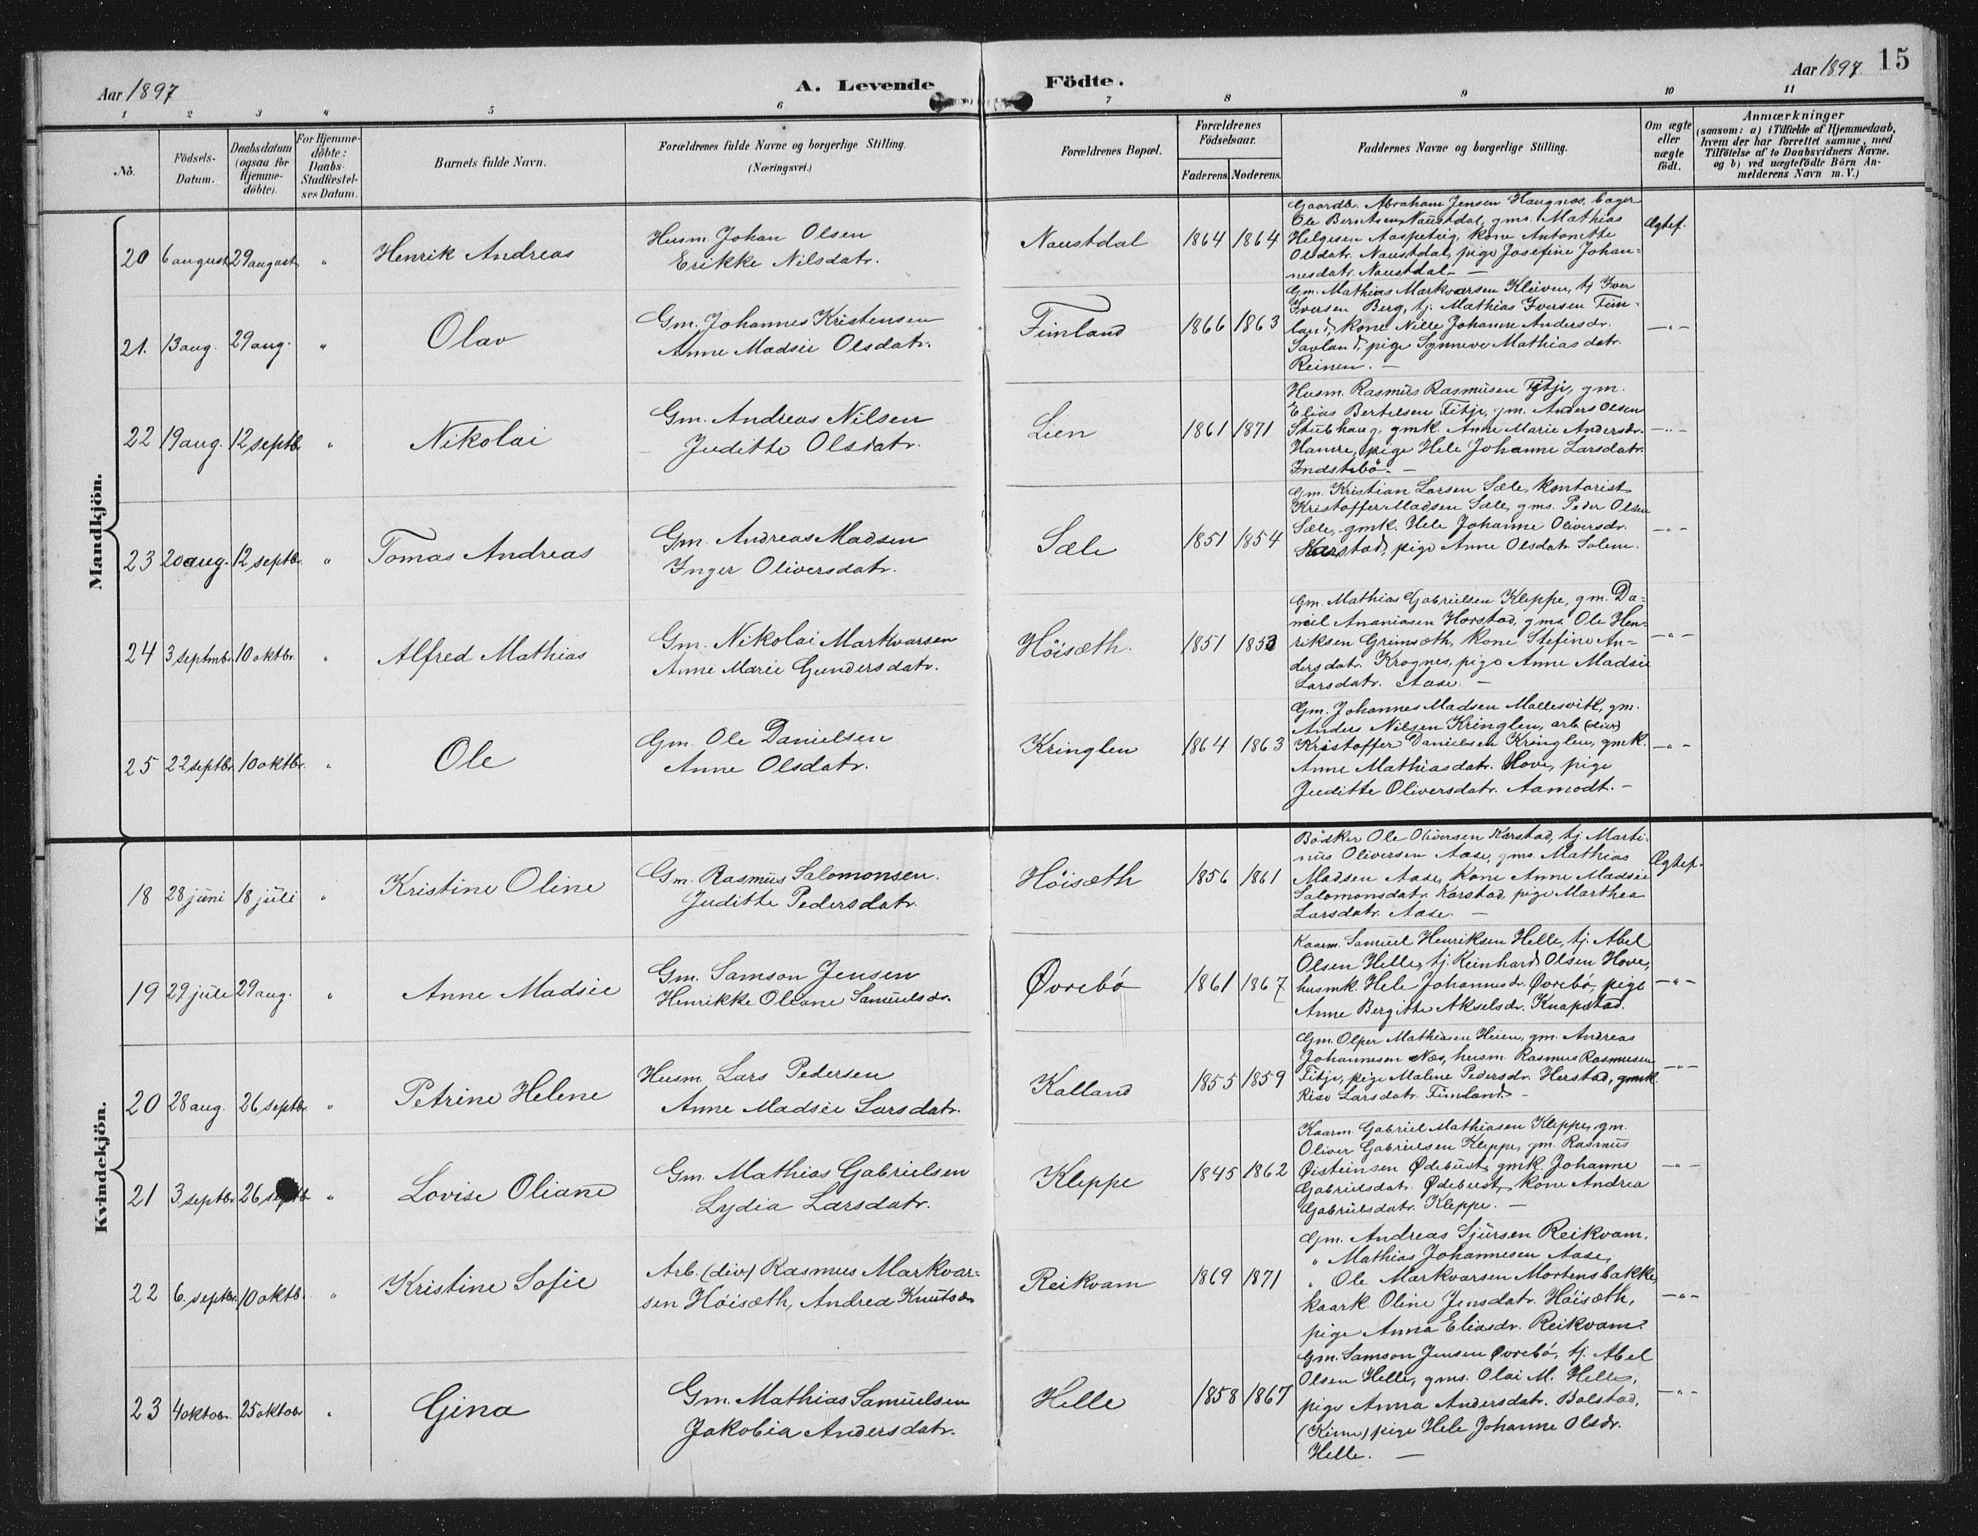 Aar 1897
A. Levende Födte.
Aar 1897. 15
1 2 3 4 5 6 7 8 9 10 11
No.
Födsels-Datum.
Daabsdatum (ogsaa for Hjemme-döbte).
For Hjemme-döbte: Daabs-Stadfæstel-ses Datum.
Barnets fulde Navn.
Forældrenes fulde Navne og borgerlige Stilling.
(Næringsvei.)
Forældrenes Bopæl.
Forældrenes Födselsaar.
Faderens. Moderens.
Faddernes Navne og borgerlige Stilling.
Om ægte eller uægte födt.
Anmærkninger
(saasom: a) i Tilfælde af Hjemmedaab, hvem der har forrettet samme, med Tilföielse af to Daabsvidners Navne, og b) ved uægtefödte Börn An-melderens Navn m. V.)
Mandkjön.
20 6 august 29 august " Henrik Andreas
Husm. Johan Olsen
Erikke Nilsdatr.
Naustdal 1864 1864
Gaardb. Abraham Jensen Haugnæs, bager
Ole Berntsen Naustdal, gms. Mathias
Helgesen Aaspeteig, kone Antonette
Olsdatr. Naustdal, pige Josefine Johan-
nesdatr. Naustdal. —
Ægtef.
21. 13 aug. 29 aug. " Olav
Gm. Johannes Kristensen
Anne Madsie Olsdatr.
Fimland 1866 1863
Gm. Mathias Markvarsen Kleiven, tj. Iver
Iversen Berg, tj. Mathias Iversen Fim-
land, kone Nille Johanne Andersdr.
Savland, pige Synneve Mathiasdatr.
Reinen. —
—"—
22 19 aug. 12 septbr " Nikolai
Gm. Andreas Nilsen
Juditte Olsdatr.
Lien 1861 1871
Husm. Rasmus Rasmusen Fitje, gm.
Elias Bertelsen Fitje, gm. Anders Olsen
Stubhaug, gmk. Anne Marie Andersdr.
Hamre, pige Hele Johanne Larsdatr.
Indstebö. —
—"—
23 20 aug. 12 septbr. " Tomas Andreas
Gm. Andreas Madsen
Inger Oliversdatr.
Sæle 1851 1854
Gm. Kristian Larsen Sæle, kontorist
Kristoffer Madsen Sæle, gms. Peder Olsen
Sæle, gmk. Hele Johanne Oliversdr.
Karstad, pige Anne Olsdatr. Solem.
—"—
24 3 septmbr. 10 oktbr. " Alfred Mathias
Gm. Nikolai Markvarsen
Anne Marie Gundersdatr.
Höisæth. 1851 1853
Gm. Mathias Gabrielsen Kleppe, gm. Da-
niel Ananiasen Horstad, gms. Ole Hen-
riksen Grimsæth, kone Stefine An-
dersdatr. Krognes, pige Anne Madsie
Larsdatr. Aase. —
—"—
25 22 septbr. 10 oktbr. " Ole
Gm. Ole Danielsen
Anne Olsdatr.
Kringlen 1864 1863
Gm. Johannes Madsen Mallesvik, gm.
Anders Nilsen Kringlen, arb. (div)
Kristoffer Danielsen Kringlen, gmk.
Anne Mathiasdatr. Hove, pige
Juditte Oliversdatr. Aamodt. —
—"—
Kvindekjön.
18 28 juni 18 juli " Kristine Oline
Gm. Rasmus Salomonsen.
Juditte Pedersdatr.
Höisæth 1856 1861
Bödker Ole Oliversen Karstad, tj. Marti-
nus Oliversen Aase, gms. Mathias
Madsen Aase, kone Anne Madsie
Salomonsdatr. Karstad, pige Marthea
Larsdatr. Aase. —
Ægtef.
19 29 juli 29 aug. " Anne Madsie
Gm. Samson Jensen
Henrikke Oliane Samuelsdr.
Øvrebö 1861 1867
Kaarm. Samuel Henriksen Helle, tj. Abel
Olsen Helle, tj. Reinhard Olsen Hove,
husmk. Hele Johannesdr. Øvrebö, pige
Anne Bergitte Akselsdr. Knapstad.
—"—
20 28 aug. 26 septbr. " Petrine Helene
Husm. Lars Pedersen
Anne Madsie Larsdatr.
Kalland 1855 1859
Gm. Olper Mathiasen Heien, gm. Andreas
Johannesen Næs, husm. Rasmus Rasmusen
Fitje, pige Malene Pedersdr. Herstad, gmk
Rise Larsdatr. Fimland. —
—"—
21 3 septbr. 26 septbr. " Lovise Oliane
Gm. Mathias Gabrielsen
Lydia Larsdatr.
Kleppe 1845 1862
Kaarm. Gabriel Mathiasen Kleppe, gm.
Oliver Gabrielsen Kleppe, gm. Rasmus
Øisteinsen Ødebust, gmk. Johanne
Gabrielsdatr. Ødebust, kone Andrea
Gabrielsdatr. Kleppe. —
—"—
22 6. septbr. 10 oktb. " Kristine Sofie
Arb. (div) Rasmus Markvar-
sen Höisæth, Andrea Knutsdr
Reikvam 1869 1871
Gm. Andreas Sjursen Reikvam,
" Mathias Johannesen Aase,
" Ole Markvarsen Mortensbakke,
kaark. Oline Jensdatr. Höisæth,
pige Anna Eliasdr. Reikvam.
—"—
23 4 oktobr. 25 oktobr " Gina
Gm. Mathias Samuelsen
Jakobia Andersdatr.
Helle 1858 1867
Gm. Samson Jensen Øvrebö, tj. Abel
Olsen Helle, gms. Olai M. Helle,
pige Anna Andersdatr. Bolstad,
(Kinn) pige Hele Johanne Olsdr.
Helle. —
—"—